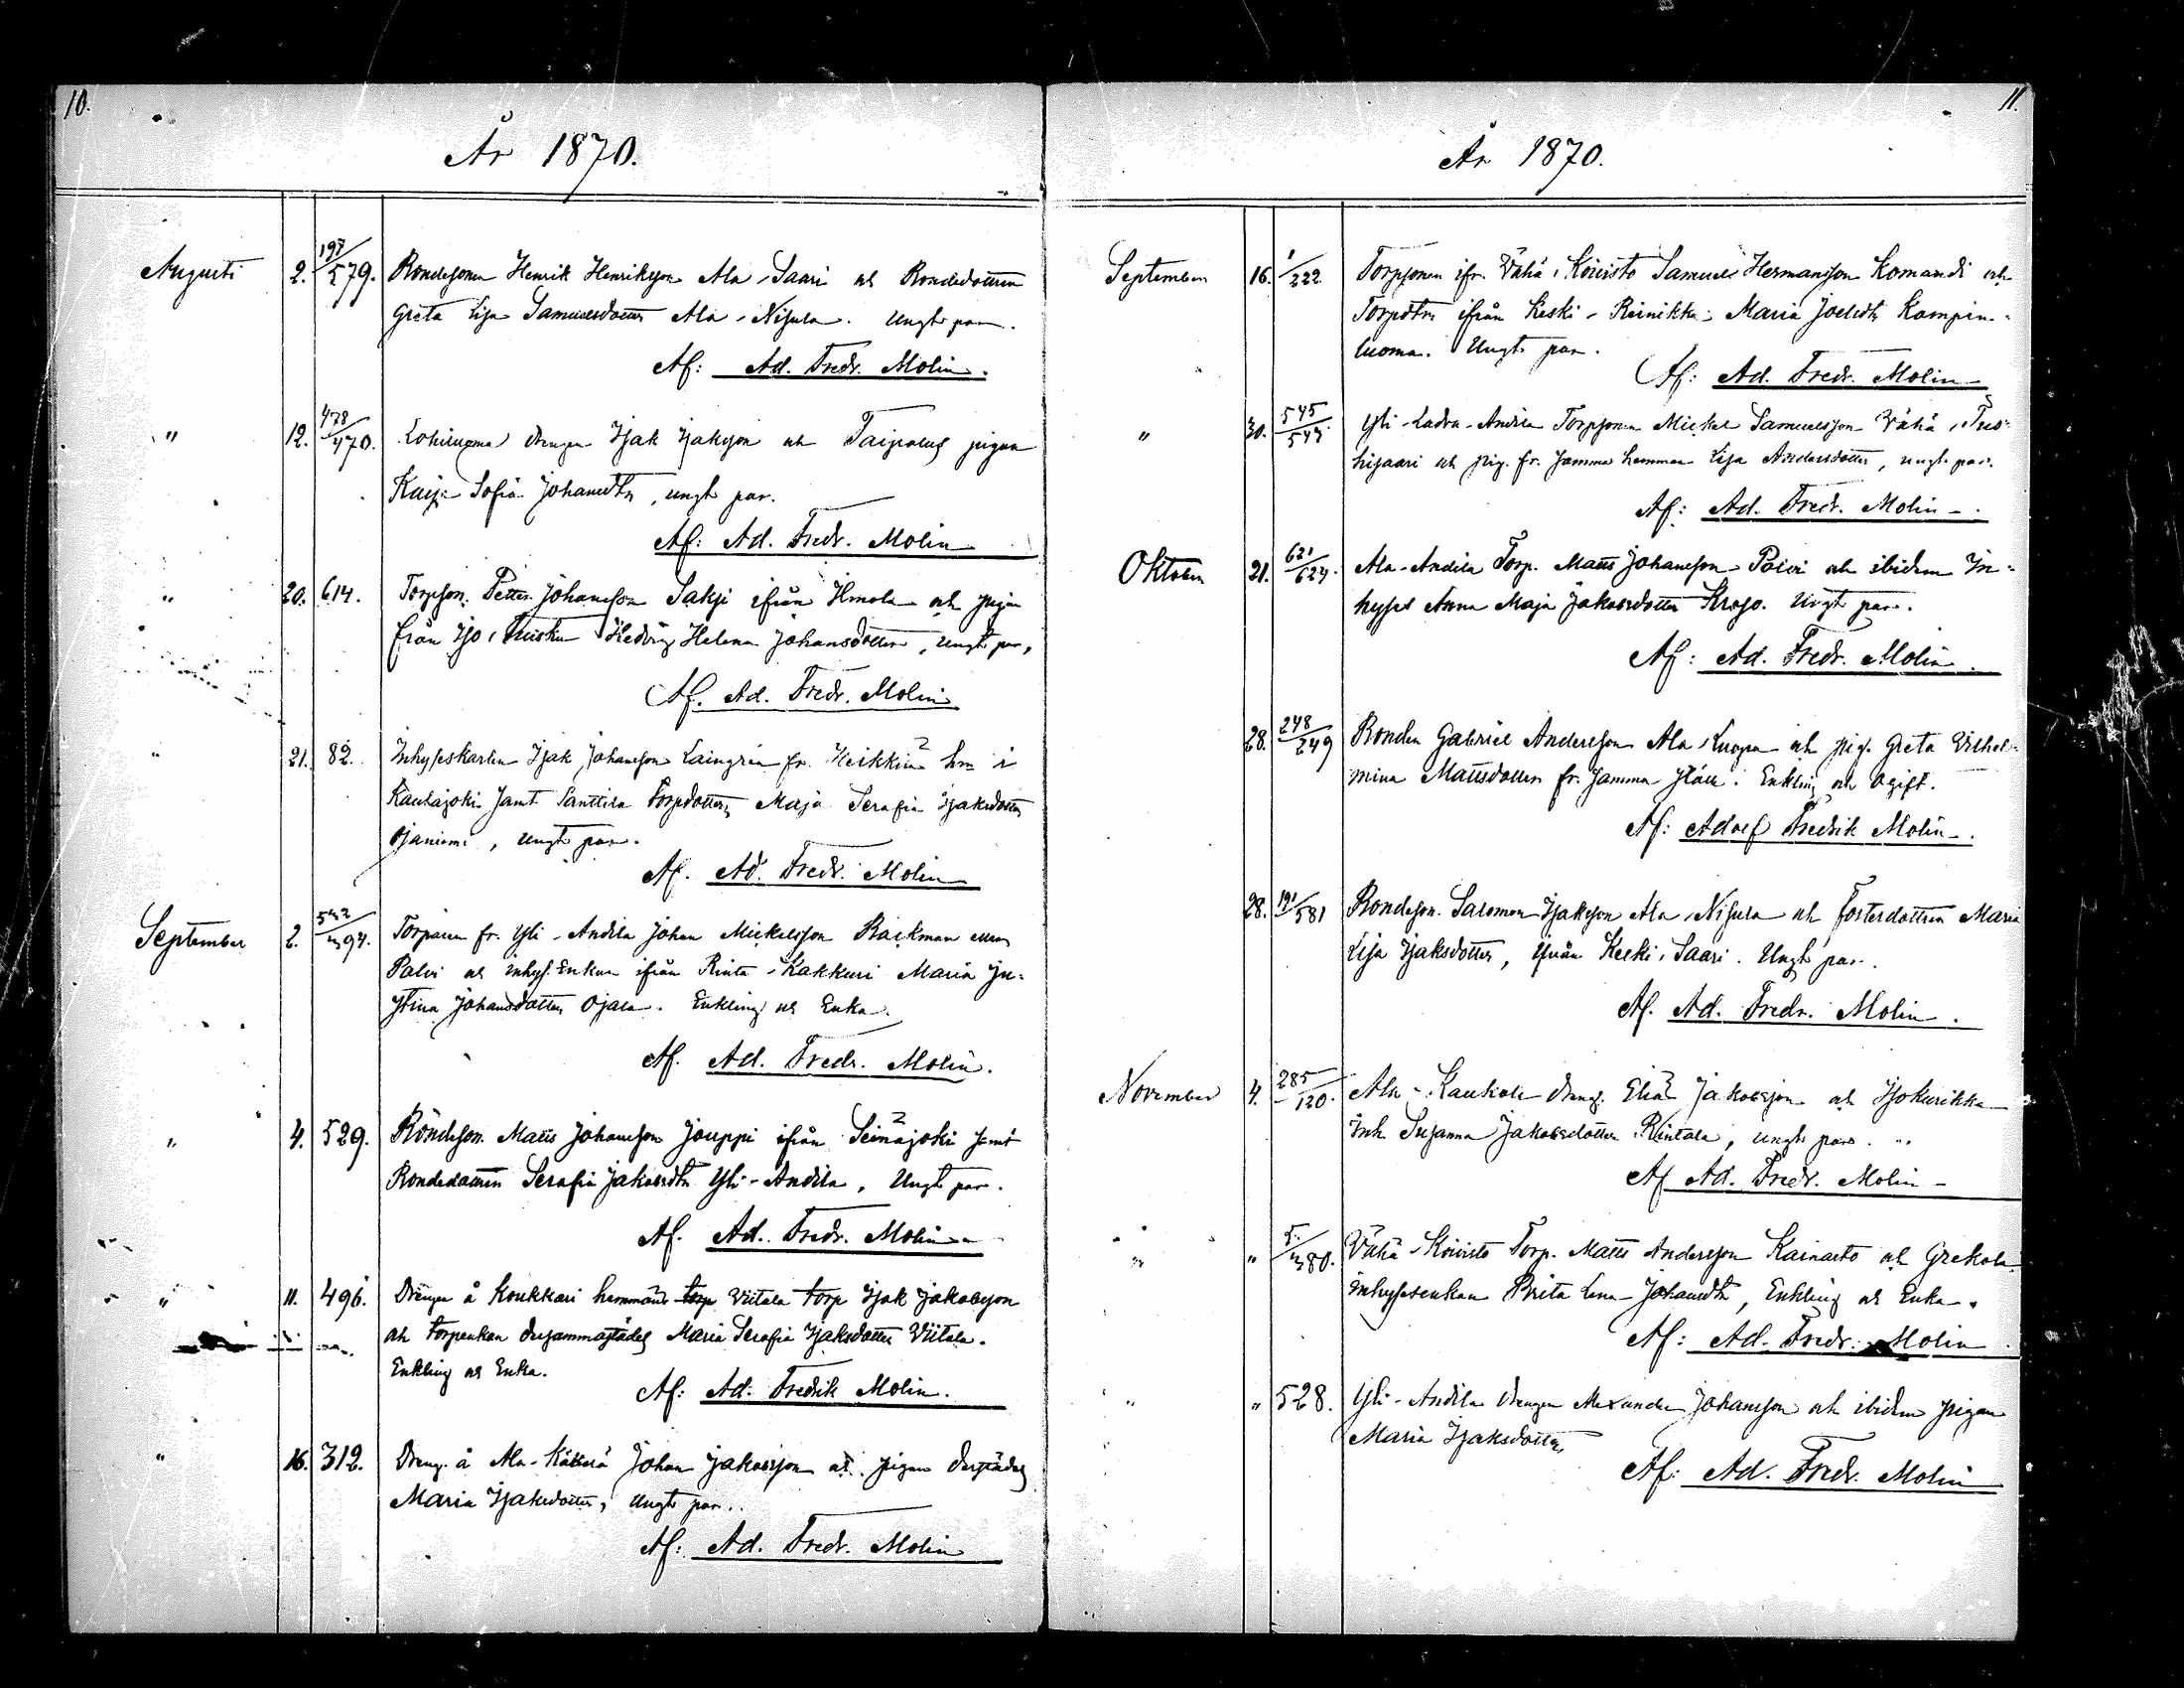 10.
År 1870.
Augusti 2. 197/579. Bondesonen Henrik Henriksson Ala-Saari och Bondedottren
Greta Lisa Samuelsdotter Ala-Nisula. Ungt par.
Af: Ad. Fredr. Molin.
" 12. 478/470. Lohiluoma drengen Isak Isaksson och Taipalus pigan
Kaisa Sofia Johansdtr, ungt par.
Af: Ad. Fredr. Molin
" 20. 614. Torpson. Petter Johansson Saksi ifrån Ilmola och pigan
från Iso, Hedvig Helena Johansdotter, ungt par,
Af. Ad. Fredr. Molin
" 21. 82. Inhyseskarlen Isak Johansson Laingren fr. Heikkilä hm i
Kauhajoki samt Panttila Torpdottren Maja Serafia Isaksdotter
Ojaniemi, ungt par.
Af. Ad. Fredr. Molin
September 2. 542/394. Torparen fr. Yli-Andila Johan Mickelsson Backman eller
Palvi och inhys. Enkan ifrån Rinta-Kakkuri Maria Ju-
stina Johansdotter Ojala. Enkling och Enka.
Af. Ad. Fredr. Molin.
" 4. 529. Bondeson. Matts Johansson Jouppi ifrån Seinäjoki samt
Bondedottren Serafia Jakobsdtr Yli-Andila, Ungt par.
Af. Ad. Fredr. Molin
" 11. 496. Drengen å Koukkari hemmans torp Viitala torp Isak Jakobsson
och torpenkan dersammastädes Maria Serafia Isaksdotter Viitala.
Enkling och Enka.
Af: Ad. Fredrik Molin.
" 16. 312. Dreng. å Ala-Käkelä Johan Jakobsson och pigan derstädes
Maria Isaksdotter, Ungt par.
Af: Ad. Fredr. Molin
11.
År 1870.
September 16. 1/222. Torpsonen ifr. Vähä-Koivisto Samuel Hermansson Komandi och
Torpdtrn ifrån Keski-Reinikka Maria Joelsdtr Kampin-
luoma. Ungt par.
Af: Ad. Fredr. Molin
" 30. 545/543. Yli-Ladva-Andila Torpsonen Mickel Samuelsson Vähä-
och pig. fr. samma hemman Lisa Andersdotter, ungt par.
Af: Ad. Fredr. Molin
Oktober 21. 621/624. Ala-Andila Torp. Matts Johansson Palvi och ibidem In-
hyses Anna Maja Jakobsdotter Krojo. Ungt par.
Af: Ad. Fredr. Molin.
28. 248/249 Bonden Gabriel Andersson Ala-Luopa och pig. Greta Vilhel-
mina Mattsdotter fr. samma ställ. Enkling och Ogift.
Af: Adolf Fredrik Molin.
28. 191/581 Bondeson. Salomon Isaksson Ala-Nisula och fosterdottren Maria
Lisa Isaksdotter, ifrån Keski-Saari. Ungt par.
Af. Ad. Fredr. Molin.
November 4. 285/120. Ala-Kaukola dreng. Elias Jakobsson och Isokurikka
inh Susanna Jakobsdotter Rintala, ungt par.
Af Ad. Fredr. Molin
" " 5/380. Vähä-Koivisto Torp. Matts Andersson Kainasto och Grekola
inhysesenkan Brita Lena Johansdtr, Enkling och Enka.
Af: Ad. Fredr. Molin.
" " 528. Yli-Andila drengen Alexander Johansson och ibidem pigan
Maria Isaksdotter
Af: Ad. Fredr. Molin